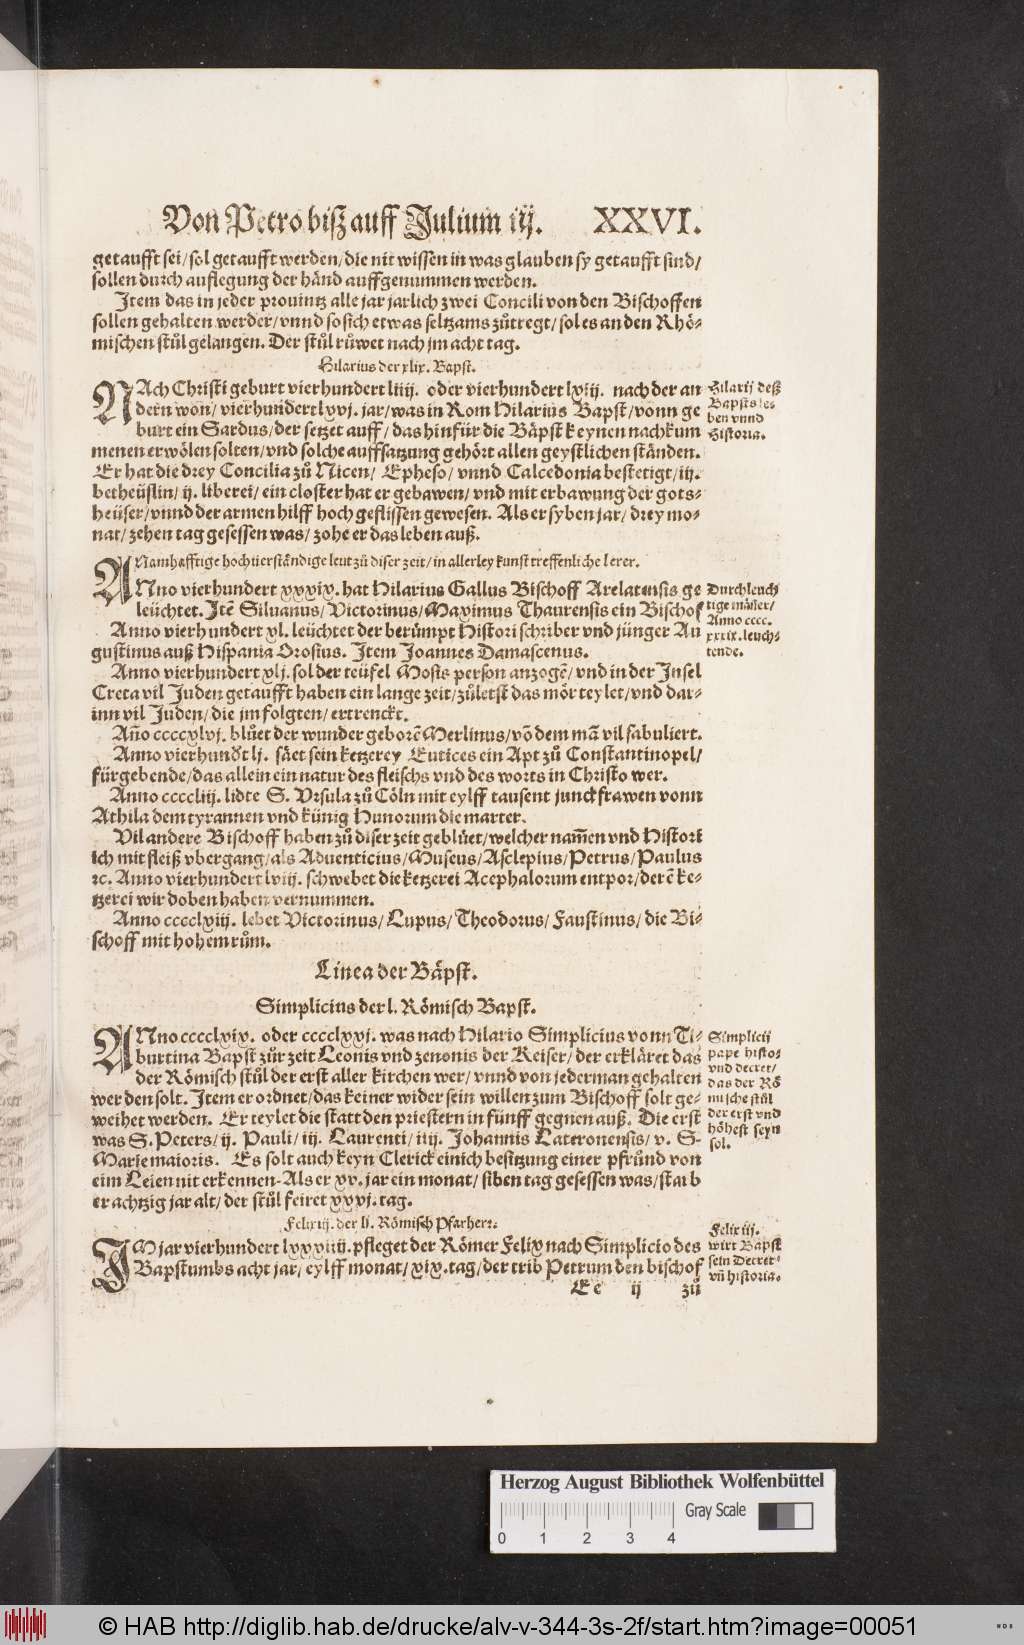 Von Petro biß auff Julium iij. XXVI.
getaufft sei/ sol getaufft werden/ die nit wissen in was glauben sy getaufft sind/
sollen durch auflegung der händ auffgenummen werden.
Item das in jeder prouintz alle jar jarlich zwei Concili von den Bischoffen
sollen gehalten werder/ vnnd so sich etwas seltzams zůtregt/ sol es an den Rhö-
mischen stůl gelangen. Der stůl růwet nach jm acht tag.
Hilarius der xlix. Bapst.
NAch Christi geburt vierhundert liiij. oder vierhundert lxiij. nach der an
dern won/ vierhundert lxvj. jar/ was in Rom Hilarius Bapst/ vonn ge
burt ein Sardus/ der setzet auff/ das hinfür die Bäpst keynen nachkum
menen erwölen solten/ vnd solche auffsatzung gehört allen geystlichen ständen.
Er hat die drey Concilia zů Nicen/ Epheso/ vnnd Calcedonia bestetigt/ iij.
betheüslin/ ij. liberei/ ein closter hat er gebawen/ vnd mit erbawung der gots-
heüser/ vnnd der armen hilff hoch geflissen gewesen. Als er syben jar/ drey mo-
nat/ zehen tag gesessen was/ zohe er das leben auß.
Hilarij deß
Bapsts le-
ben vnnd
Historia.
Namhafftige hochuerständige leut zů diser zeit/ in allerley kunst treffenliche lerer.
ANno vierhundert xxxix. hat Hilarius Gallus Bischoff Arelatensis ge
leüchtet. Itē Siluanus/ Victorinus/ Maximus Thaurensis ein Bischof
Anno vierhundert xl. leüchtet der berümpt Histori schriber vnd jünger Au
gustinus auß Hispania Orosius. Item Joannes Damascenus.
Durchleuch
tige mäñer/
Anno cccc.
xxxix. leuch-
tende.
Anno vierhundert xlj. sol der teüfel Mosis person anzogē/ vnd in der Insel
Creta vil Juden getaufft haben ein lange zeit/ zůletst das mör teylet/ vnd dar-
inn vil Juden/ die jm folgten/ ertrenckt.
Año ccccxlvj. blůet der wunder geborē Merlinus/ vō dem mā vil fabuliert.
Anno vierhundt lj. säet sein ketzerey Eutices ein Apt zů Constantinopel/
fürgebende/ das allein ein natur des fleischs vnd des worts in Christo wer.
Anno ccccliij. lidte S. Vrsula zů Cöln mit eylff tausent junckfrawen vonn
Athila dem tyrannen vnd künig Hunorum die marter.
Vil andere Bischoff haben zů diser zeit geblüet/ welcher nam̄en vnd Histori
ich mit fleiß vbergang/ als Aduenticius/ Museus/ Asclepius/ Petrus/ Paulus
ꝛc. Anno vierhundert lviij. schwebet die ketzerei Acephalorum entpor/ derē ke-
tzerei wir doben haben vernummen.
Anno cccclxiij. lebet Victorinus/ Lupus/ Theodorus/ Faustinus/ die Bi-
schoff mit hohem rům.
Linea der Bäpst.
Simplicius der l. Römisch Bapst.
ANno cccclxix. oder cccclxxj. was nach Hilario Simplicius vonn Ti-
burtina Bapst zůr zeit Leonis vnd zenonis der Keiser/ der erkläret das
der Römisch stůl der erst aller kirchen wer/ vnnd von jederman gehalten
werden solt. Item er ordnet/ das keiner wider sein willen zum Bischoff solt ge-
weihet werden. Er teylet die statt den priestern in fünff gegnen auß. Die erst
was S. Peters/ ij. Pauli/ iij. Laurenti/ iiij. Johannis Lateronensis/ v. S.
Marie maioris. Es solt auch keyn Clerick einich besitzung einer pfrůnd von
eim Leien nit erkennen. Als er xv. jar ein monat/ siben tag gesessen was/ starb
er achtzig jar alt/ der stůl feiret xxvj. tag.
Simplicij
pape histo-
vnd decret/
das der Rö
mische stůl
der erst vnd
höhest seyn
sol.
Felix iij. der lj. Römisch Pfarherr.
IM jar vierhundert lxxxiiij. pfleget der Römer Felix nach Simplicio des
Bapstumbs acht jar/ eylff monat/ xix. tag/ der trib Petrum den bischof
Felix iij.
wirt Bapst
sein Decret-
vñ historia.
Ee ij zů
Herzog August Bibliothek Wolfenbüttel
Gray Scale
0 1 2 3 4
© HAB http://diglib.hab.de/drucke/alv-v-344-3s-2f/start.htm?image=00051